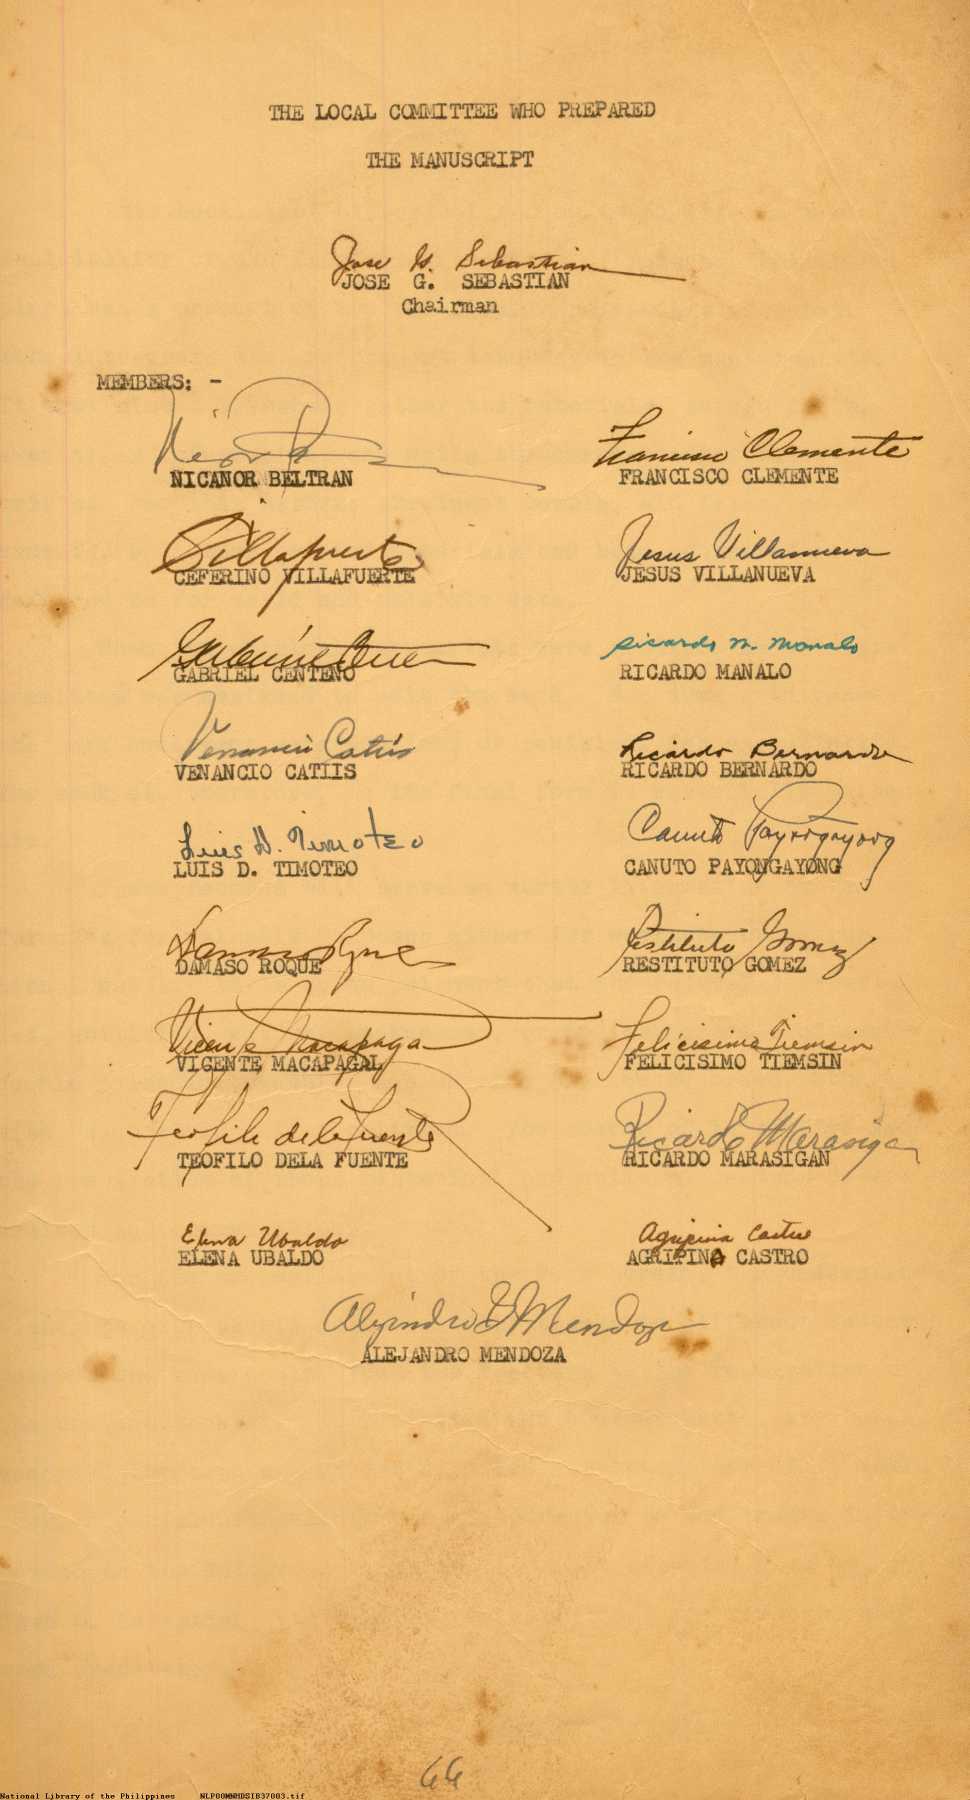 THE LOCAL COMMITTEE WHO PREPARED
THE MANUSCRIPT
Jose G. Sebastian
JOSE G. SEBASTIAN
Chairman
MEMBERS: -
Francisco Clemente
NICANOR BELTRAN FRANCISCO CLEMENTE
Villafuerte Jesus Villanueva
CEFERINO VILLAFUERTE JESUS VILLANUEVA
Ricardo M. Manalo
GABRIEL CENTENO RICARDO MANALO
Venancio Catiis Ricardo Bernardo
VENANCIO CATIIS RICARDO BERNARDO
Luis D. Timoteo Canuto Payongayong
LUIS D. TIMOTEO CANUTO PAYONGAYONG
Damaso Roque Restituto Gomez
DAMASO ROQUE RESTITUTO GOMEZ
Vicente Macapagal Felicisimo Tiemsin
VICENTE MACAPAGAL FELICISIMO TIEMSIN
Teofilo de la Fuente Ricardo Marasigan
TEOFILO DELA FUENTE RICARDO MARASIGAN
Elena Ubaldo Agripina Castro
ELENA UBALDO AGRIPINA CASTRO
Alejandro G Mendoza
ALEJANDRO MENDOZA
66
National Library of the Philippines NLP00M0RMDSIB37003.tif